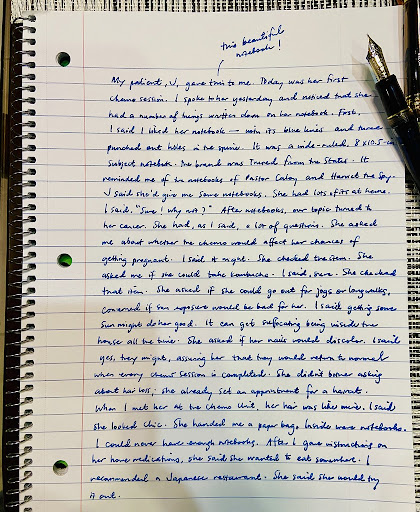 this beautiful
notebook!
My patient, V, gave this to me. Today was her first
chemo session. I spoke to her yesterday and noticed that she
had a number of things written down on her notebook. First,
I said I liked her notebook — with its blue lines and three
punched out holes in the spine. It was a wide-ruled, 8 x 10.5-in
subject notebook. The brand was Traced from the States. It
reminded me of the notebooks of Pastor Caloy and Harriet the Spy.
V said she'd give me some notebooks. She had lots of its at home.
I said, "Sure! Why not?" After notebooks, our topic turned to
her cancer. She had, as I said, a lot of questions. She asked
me about whether the chemo would affect her chances of
getting pregnant. I said it might. She checked the item. She
asked me if she could take kombucha. I said, sure. She checked
that item. She asked if she could go out for jogs or long walks,
concerned if sun exposure would be bad for her. I said getting some
sun might do her good. It can get suffocating being inside the
house all the time. She asked if her nails would discolor. I said
yes, they might, assuring her that they would return to normal
when every chemo session is completed. She didn't bother asking
about hair loss; she already set an appointment for a haircut.
When I met her at the Chemo Unit, her hair was like mine. I said
she looked chic. She handed me a paper bag. Inside were notebooks.
I could never have enough notebooks. After I gave instructions on
her home medications, she said she wanted to eat somewhere. I
recommended a Japanese restaurant. She said she would try
it out.